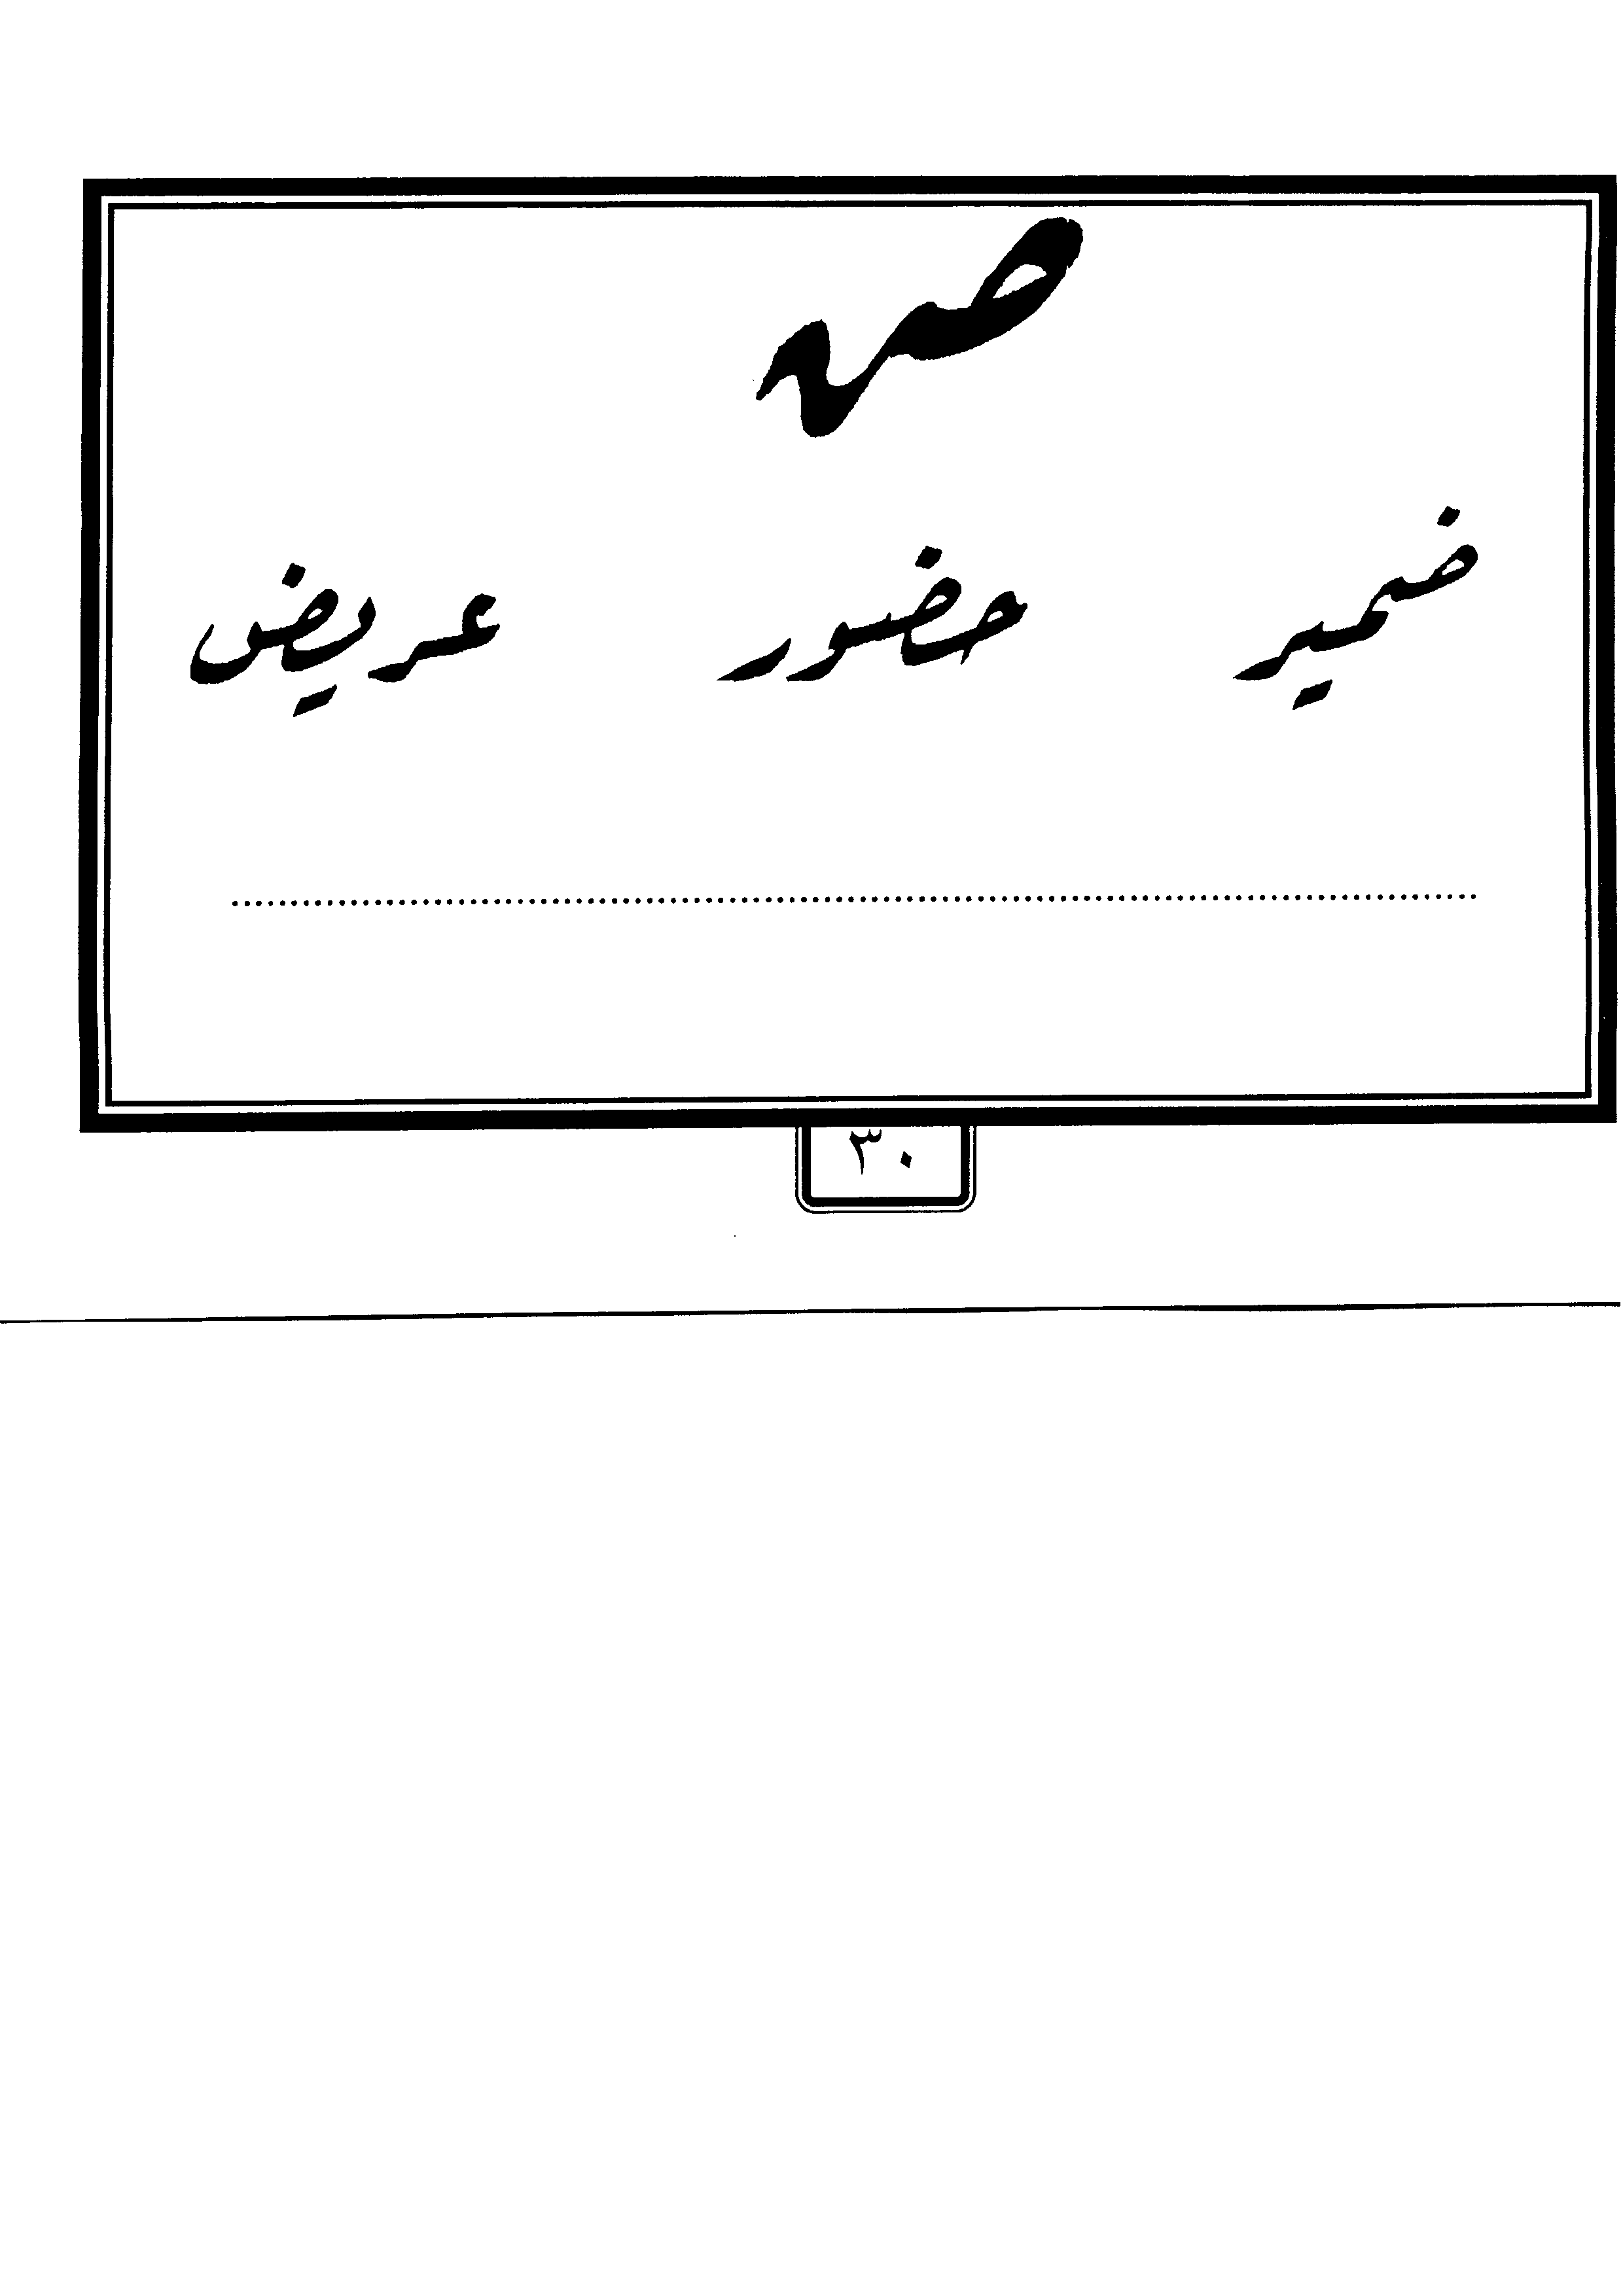 صه
ضمير حضور عريض
٣٠